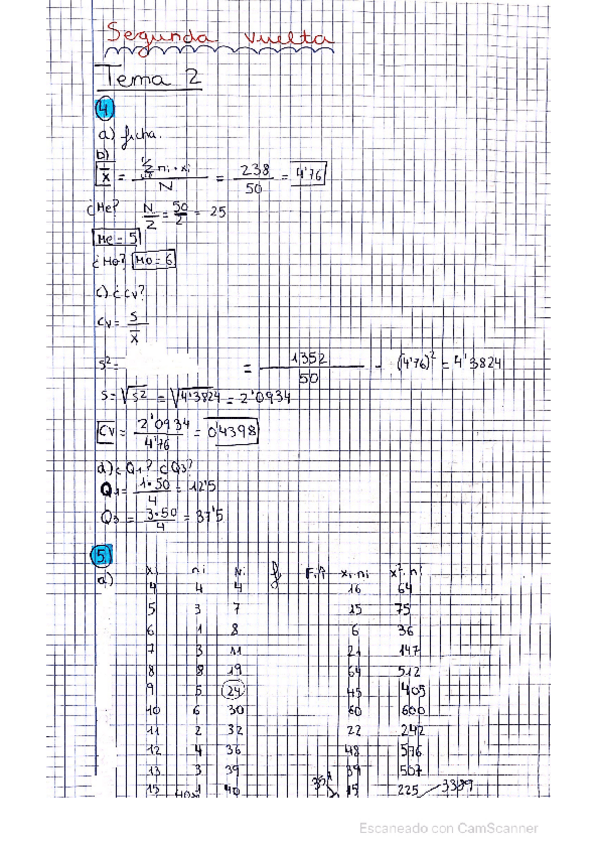 Segunda vuelta
Tema 2
4
a) ficha.
b)
x̄ = Σ ni · xi / N = 238 / 50 = 4'76
¿Me? N/2 = 50/2 = 25
Me = 5
¿Mo? Mo = 6
c) ¿CV?
CV = S / x̄
S² = = 1352 / 50 - (4'76)² = 4'3824
S = √S² = √4'3824 = 2'0934
CV = 2'0934 / 4'76 = 0'4398
d) ¿Q1? ¿Q3?
Q1 = 1·50 / 4 = 12'5
Q3 = 3·50 / 4 = 37'5
5
a) xi ni Ni f xi·ni x²·ni
4 4 4 16 64
5 3 7 15 75
6 1 8 6 36
7 3 11 21 147
8 8 19 64 512
9 5 24 45 405
10 6 30 60 600
11 2 32 22 242
12 4 36 48 576
13 3 39 39 507
15 1 40 15 225 3389
Escaneado con CamScanner